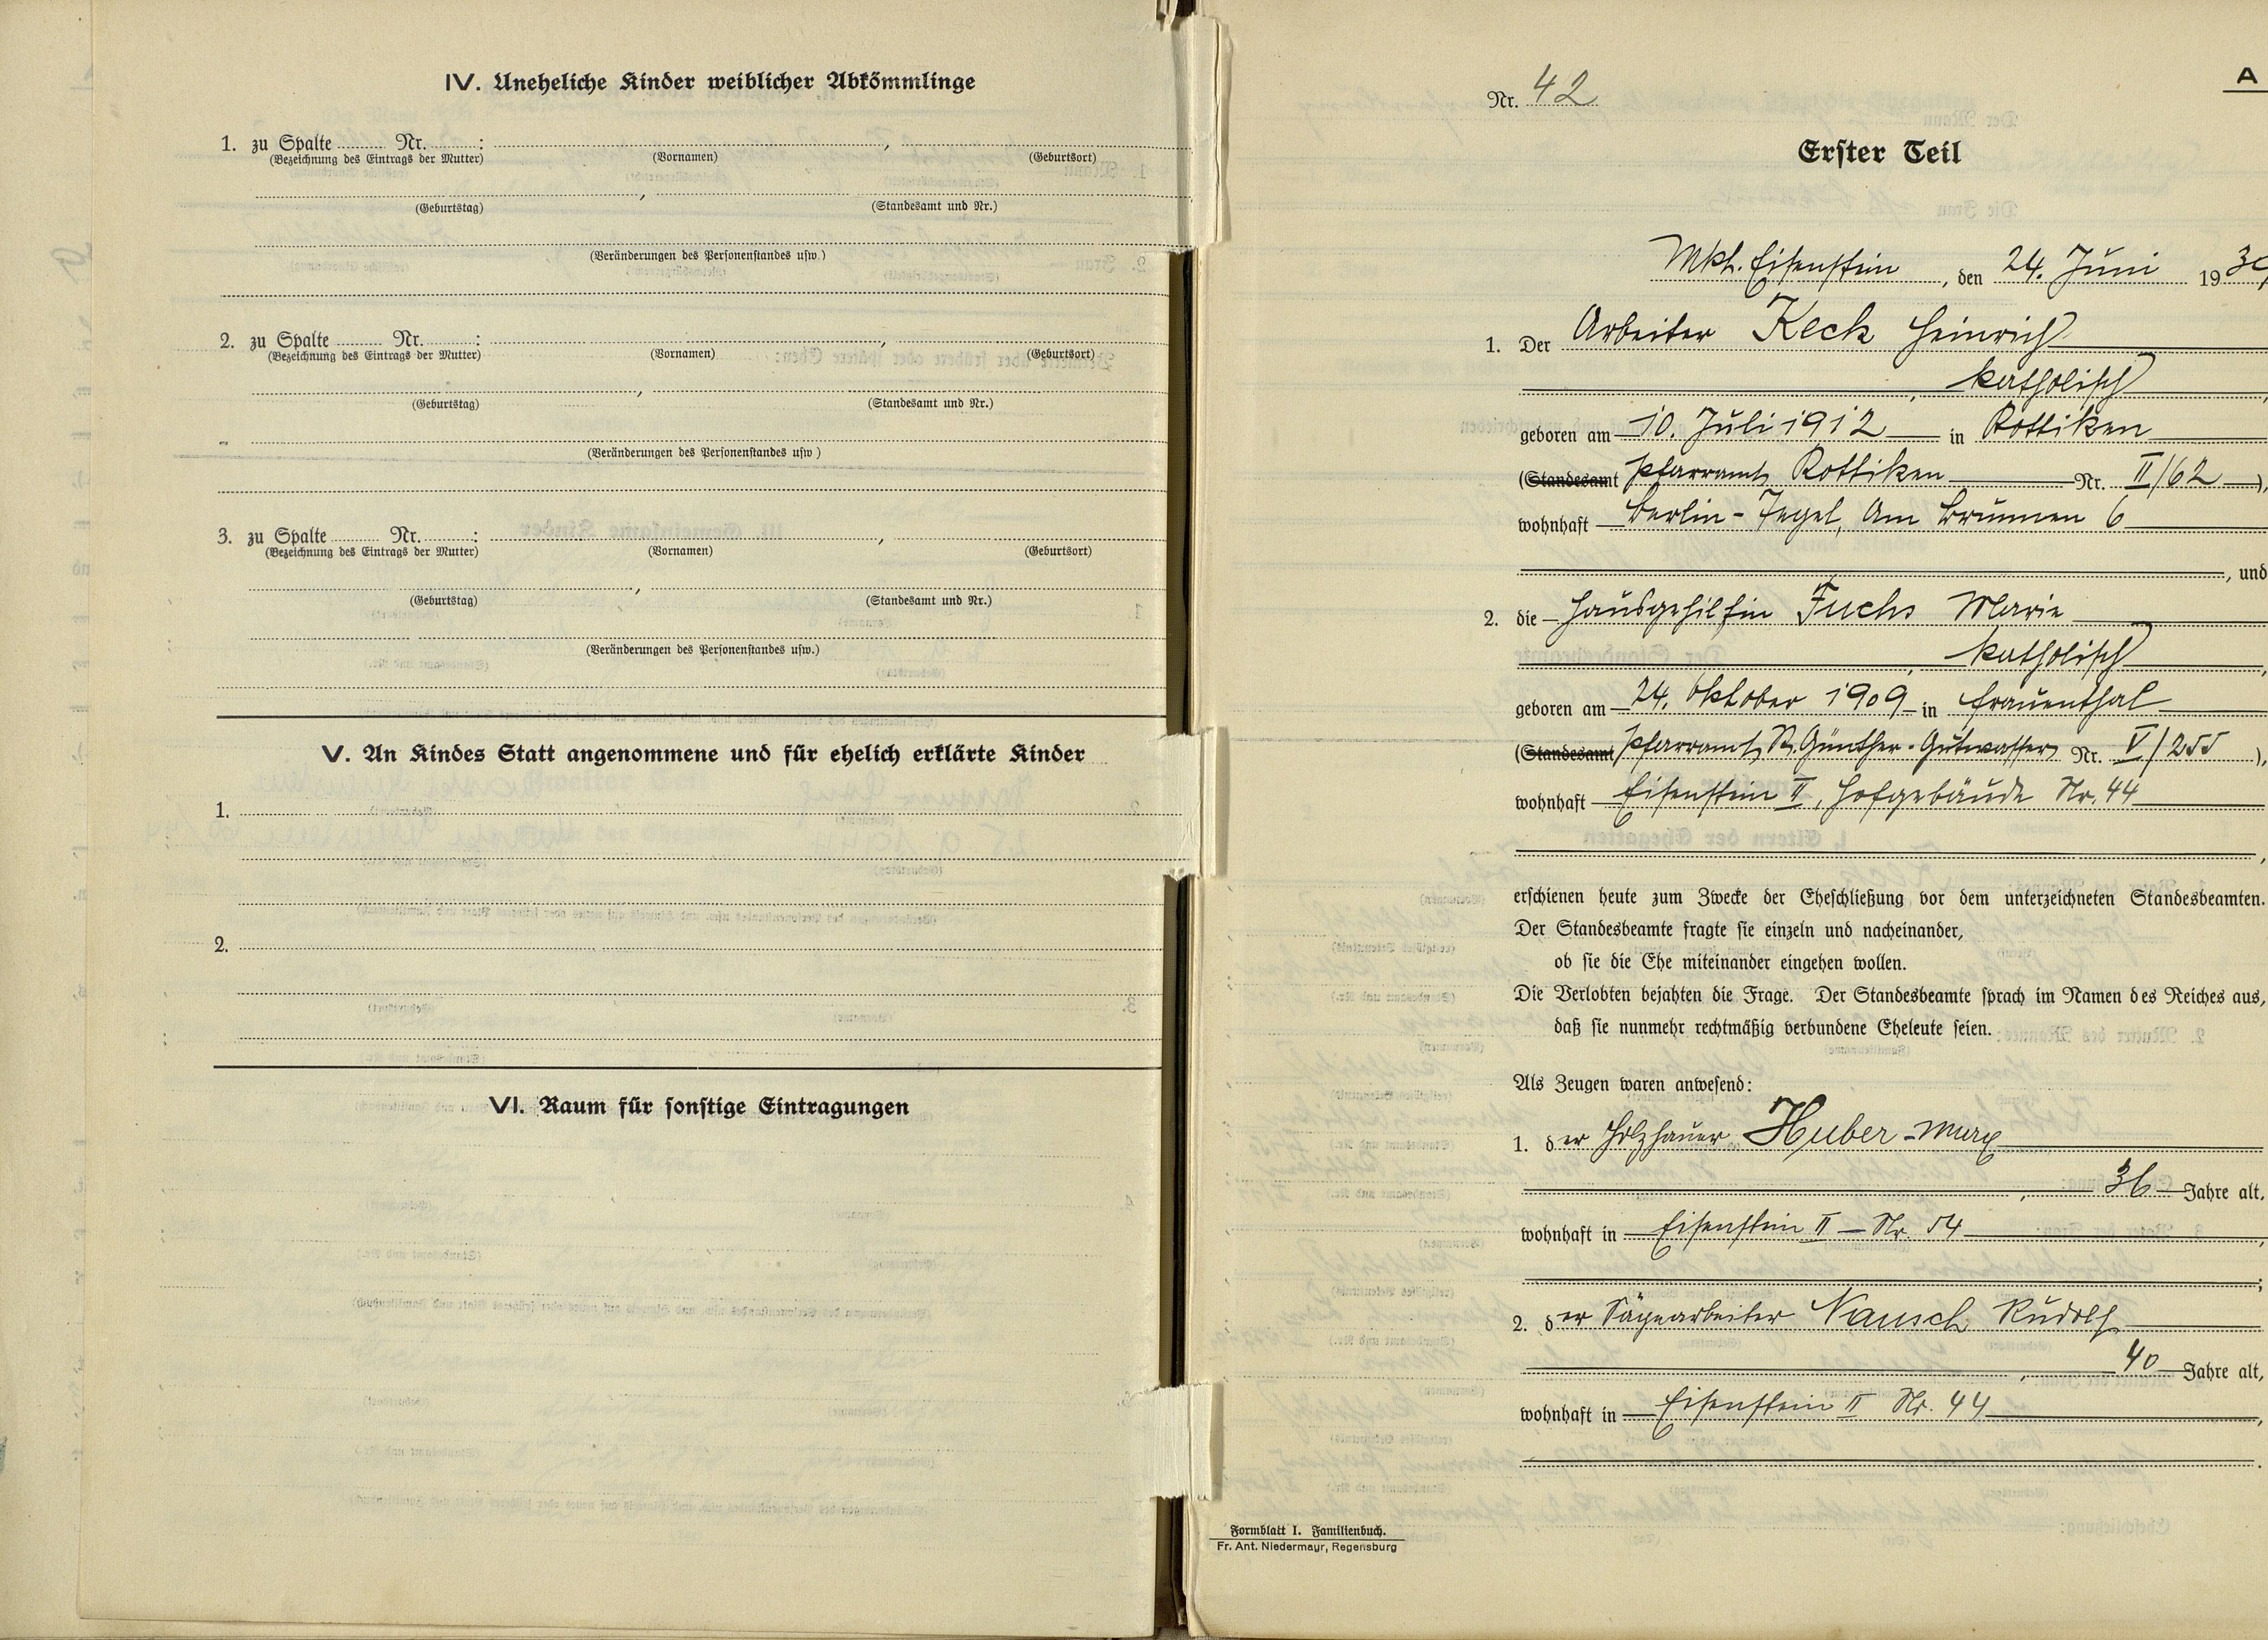 IV. Uneheliche Kinder weiblicher Abkömmlinge
1. zu Spalte ........ Nr. ........ : ,
(Bezeichnung des Eintrags der Mutter) (Vornamen) (Geburtsort)
,
(Geburtstag) (Standesamt und Nr.)
(Veränderungen des Personenstandes usw.)
2. zu Spalte ........ Nr. ........ : ,
(Bezeichnung des Eintrags der Mutter) (Vornamen) (Geburtsort)
,
(Geburtstag) (Standesamt und Nr.)
(Veränderungen des Personenstandes usw)
3. zu Spalte ........ Nr. ........ : ,
(Bezeichnung des Eintrags der Mutter) (Vornamen) (Geburtsort)
,
(Geburtstag) (Standesamt und Nr.)
(Veränderungen des Personenstandes usw.)
V. An Kindes Statt angenommene und für ehelich erklärte Kinder
1.
2.
VI. Raum für sonstige Eintragungen
A
Nr. 42
Erster Teil
Mkt. Eisenstein, den 24. Juni 1939
1. Der Arbeiter Keck Heinrich
, katholisch,
geboren am 10. Juli 1912 in Rottiken
(Standesamt Pfarramt Rottiken Nr. II/62),
wohnhaft Berlin-Tegel, Am Brunnen 6
, und
2. die Hausgehilfin Fuchs Marie
, katholisch,
geboren am 24. Oktober 1909 in Frauenthal
(Standesamt Pfarramt St. Günther-Gutwasser Nr. V/255),
wohnhaft Eisenstein II, Hofgebäude Nr. 44
,
erschienen heute zum Zwecke der Eheschließung vor dem unterzeichneten Standesbeamten.
Der Standesbeamte fragte sie einzeln und nacheinander,
ob sie die Ehe miteinander eingehen wollen.
Die Verlobten bejahten die Frage. Der Standesbeamte sprach im Namen des Reiches aus,
daß sie nunmehr rechtmäßig verbundene Eheleute seien.
Als Zeugen waren anwesend:
1. der Holzhauer Huber - Max
, 36 Jahre alt,
wohnhaft in Eisenstein II - Nr. 54
;
2. der Sägearbeiter Nausch Rudolf
, 40 Jahre alt,
wohnhaft in Eisenstein II Nr. 44,
.
Formblatt I. Familienbuch.
Fr. Ant. Niedermayr, Regensburg